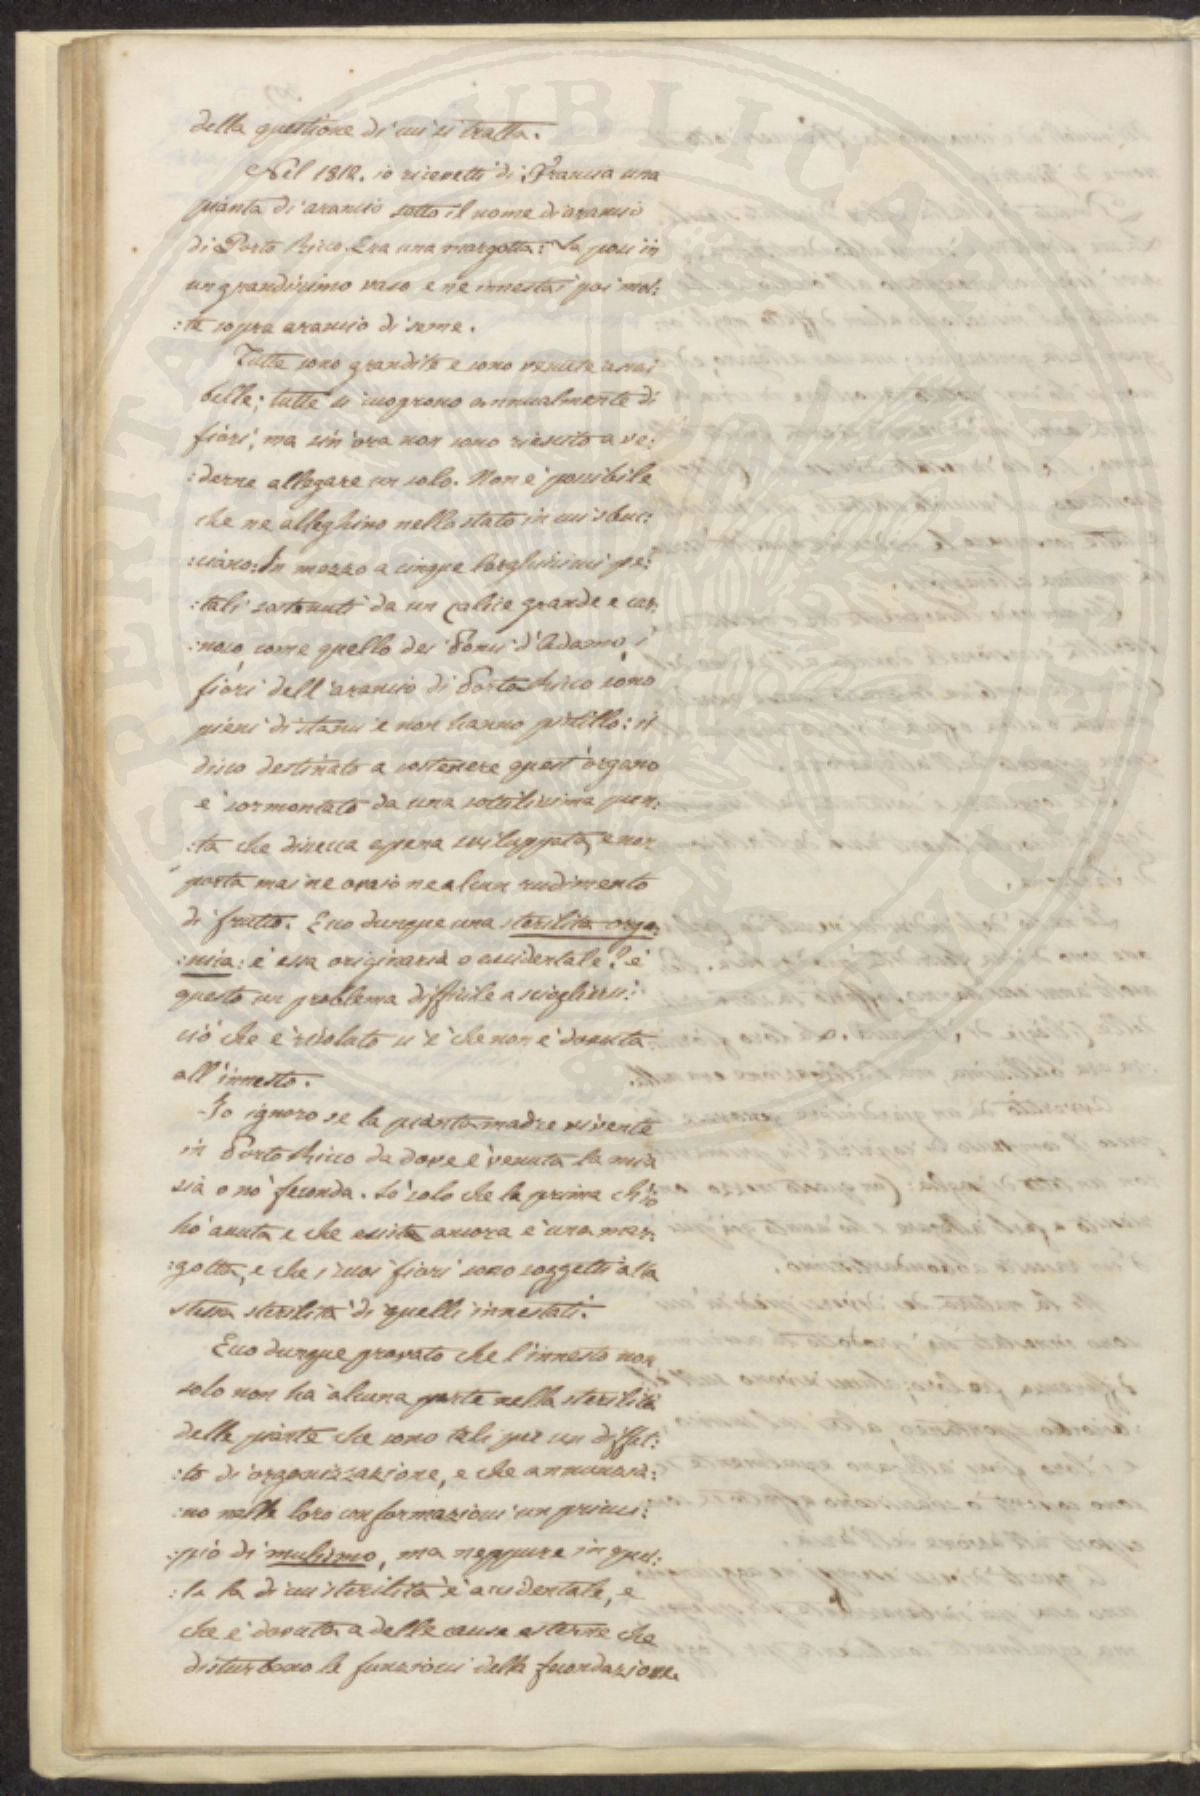 della questione di cui si tratta.
Nel 1812. io ricevetti di Francia una
pianta di arancio sotto il nome di arancio
di Porto Ricco. Era una margotta: La posi in
un grandissimo vaso e ne innestai poi mol:
:te sopra arancio di seme.
Tutte sono grandite e sono venute assai
belle; tutte si cuoprono annualmente di
fiori, ma sin'ora non sono riescito a ve:
:derne allegare un solo. Non è possibile
che ne alleghino nello stato in cui sbuc:
:ciano: In mezzo a cinque larghissimi pe:
:tali sostenuti da un calice grande e car:
:noso come quello dei Pomi d'Adamo, i
fiori dell'arancio di Porto Ricco sono
pieni di stami e non hanno pistillo: il
disco destinato a sostenere quest'organo
è sormontato da una sottilissima pun:
:ta che dissecca apena sviluppata, e non
porta mai ne ovaio ne alcun rudimento
di frutto. Ecco dunque una sterilità orga:
:nica: è essa originaria o accidentale? è
questo un problema difficile a sciogliersi:
ciò che è risolato si è che non è dovuta
all'innesto.
Io ignoro se la pianta madre vivente
in Porto Ricco da dove è venuta la mia
sia o nò feconda. Sò solo che la prima ch'io
hò avuta e che esiste ancora è una mar:
:gotta, e che i suoi fiori sono soggetti alla
stessa sterilità di quelli innestati.
Ecco dunque provato che l'innesto non
solo non ha alcuna parte nella sterilità
delle piante che sono tali per un diffet:
:to di organizzazione, e che annunzia:
:no nelle loro conformazioni un princi:
:pio di mulismo, ma neppure in quel:
:le la di cui sterilità è accidentale, e
che è dovuta a delle cause esterne che
disturbano le funzioni della fecondazione.
SPERITAS PUBLICAE